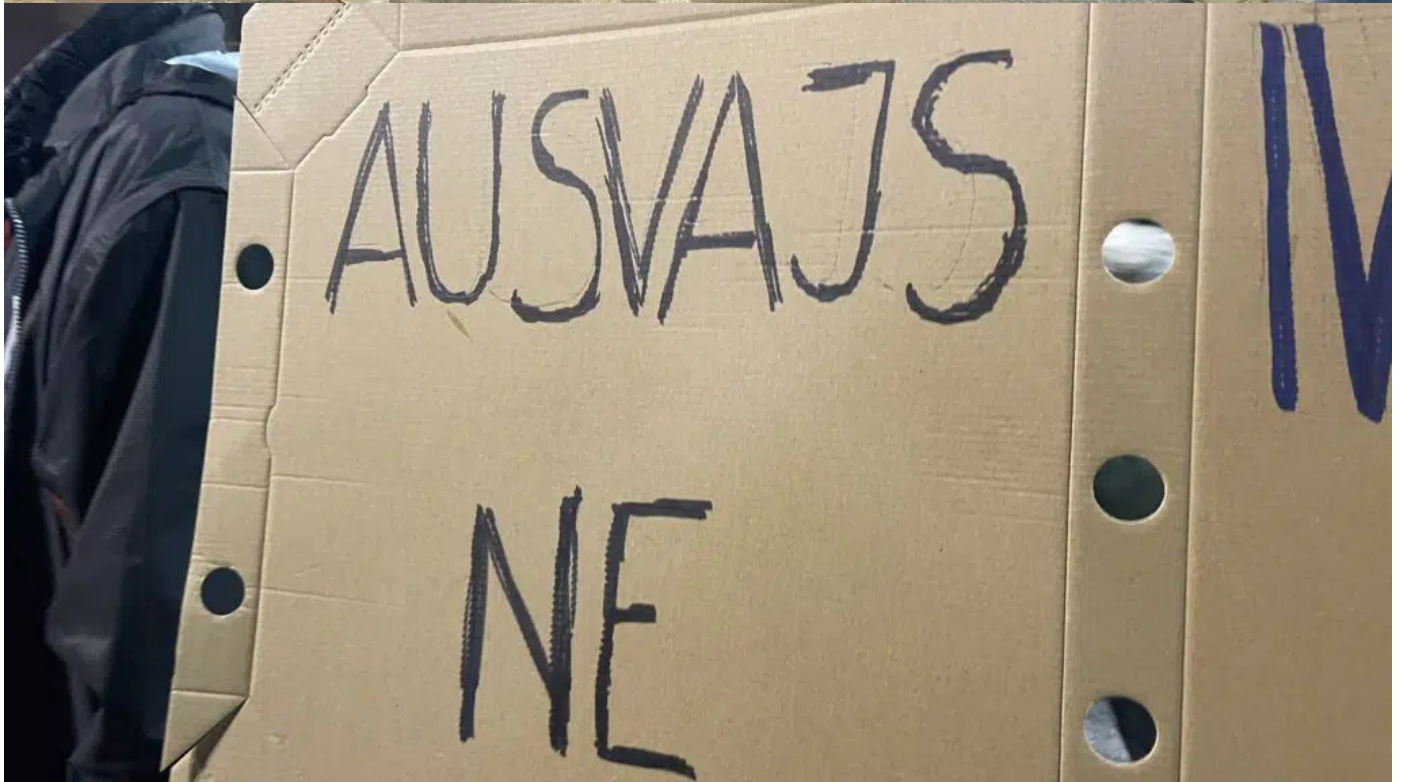 AUSVAJS
NE